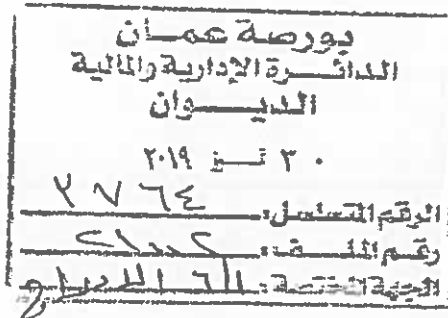 بورصة عمـــان
الدائـــرة الإدارية والمالية
الديـــوان
٣٠ تمـــز ٢٠١٩
الرقم المتسلسل: ٣٧٦٤
رقم الملـــف:
الجهة المختصة: